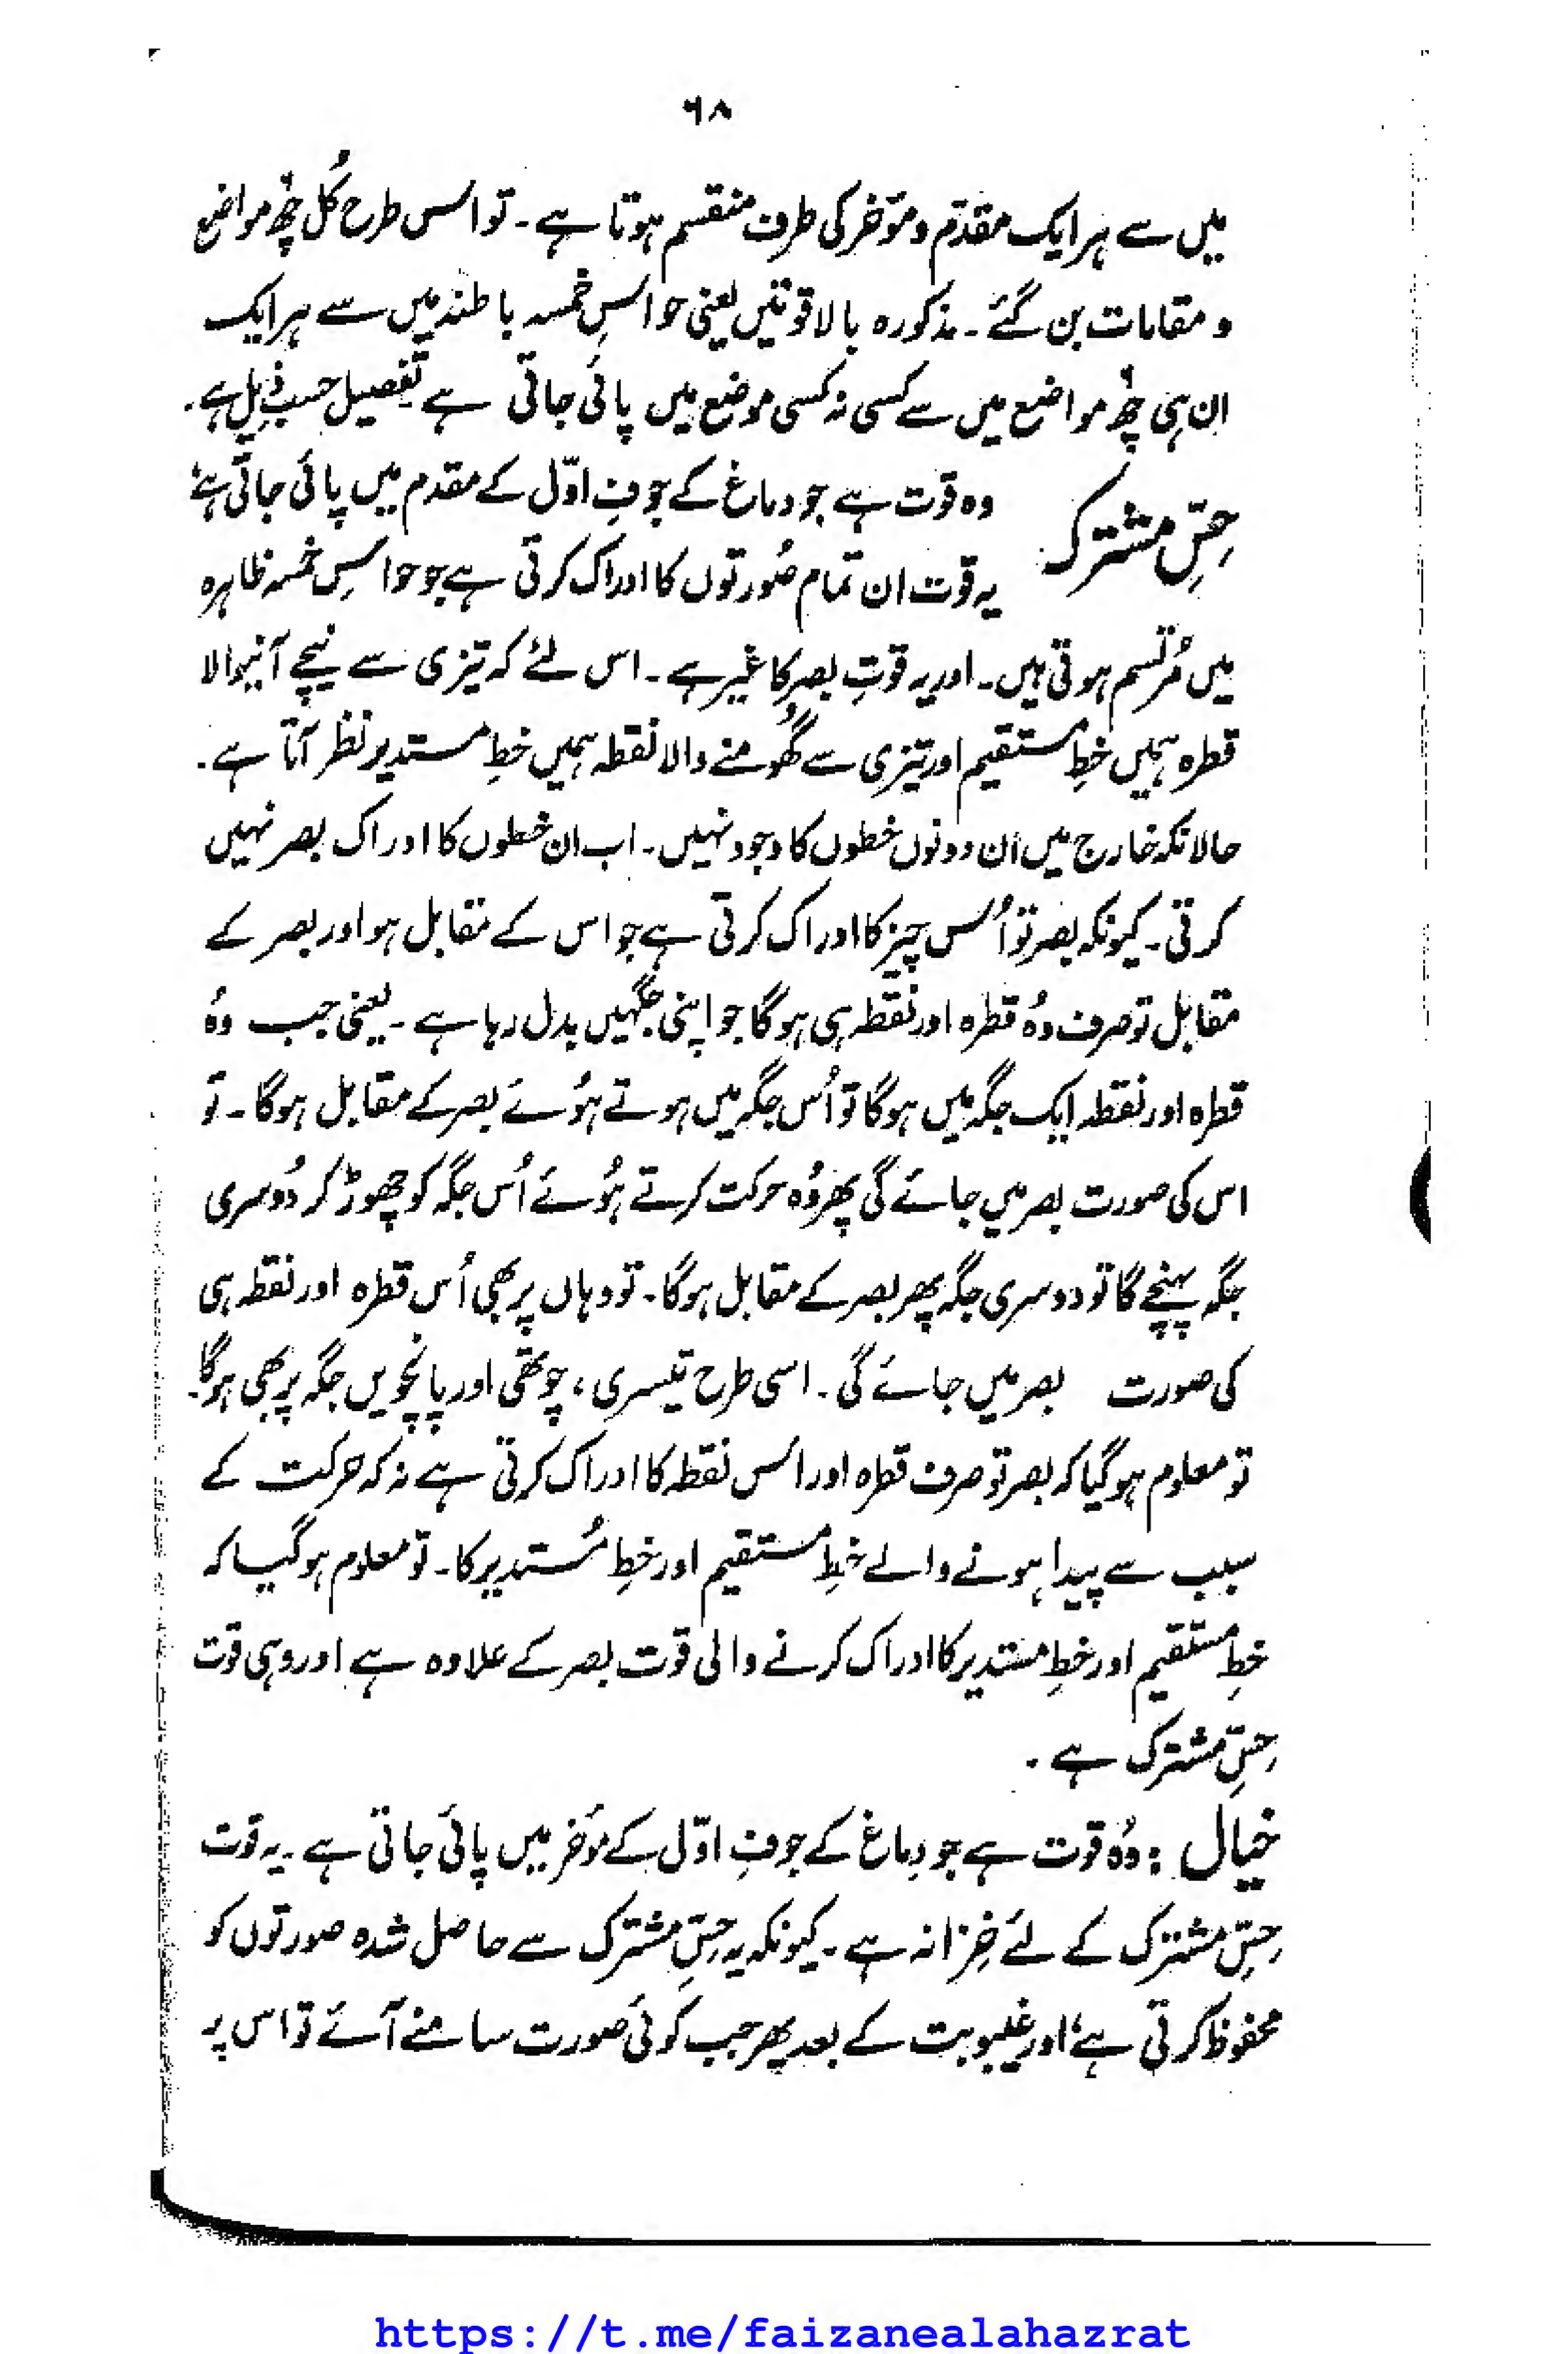 ۶۸
میں سے ہر ایک مقدّم و مؤخر کی طرف منقسم ہوتا ہے۔ تو اس طرح کُل چھ مواضع
و مقامات بن گئے۔ مذکورہ بالا قوتیں یعنی حواسِ خمسہ باطنہ میں سے ہر ایک
ان ہی چھ مواضع میں سے کسی نہ کسی موضع میں پائی جاتی ہے تفصیل حسبِ ذیل ہے۔
حِسِّ مشترک وہ قوت ہے جو دماغ کے جوفِ اوّل کے مقدم میں پائی جاتی ہے
یہ قوت ان تمام صُورتوں کا ادراک کرتی ہے جو حواسِ خمسہ ظاہرہ
میں مُرتسم ہوتی ہیں۔ اور یہ قوتِ بصر کا غیر ہے۔ اس لئے کہ تیزی سے نیچے آنیوالا
قطرہ ہمیں خطِ مستقیم اور تیزی سے گھُومنے والا نقطہ ہمیں خطِ مستدیر نظر آتا ہے۔
حالانکہ خارج میں ان دونوں خطوں کا وجود نہیں۔ اب ان خطوں کا ادراک بصر نہیں
کرتی۔ کیونکہ بصر تو اُس چیز کا ادراک کرتی ہے جو اس کے مقابل ہو اور بصر کے
مقابل تو صرف وُہ قطرہ اور نقطہ ہی ہو گا جو اپنی جگہیں بدل رہا ہے۔ یعنی جب وُہ
قطرہ اور نقطہ ایک جگہ میں ہو گا تو اُس جگہ میں ہوتے ہوُئے بصر کے مقابل ہوگا۔ تو
اس کی صورت بصر میں جائے گی پھر وُہ حرکت کرتے ہوُئے اُس جگہ کو چھوڑ کر دُوسری
جگہ پہنچے گا تو دوسری جگہ پھر بصر کے مقابل ہوگا۔ تو وہاں پر بھی اُس قطرہ اور نقطہ ہی
کی صورت بصر میں جائے گی۔ اسی طرح تیسری، چوتھی اور پانچویں جگہ پر بھی ہوگا۔
تو معلوم ہو گیا کہ بصر تو صرف قطرہ اور اس نقطہ کا ادراک کرتی ہے نہ کہ حرکت کے
سبب سے پیدا ہونے والے خطِ مستقیم اور خطِ مُستدیر کا۔ تو معلوم ہو گیا کہ
خطِ مستقیم اور خطِ مستدیر کا ادراک کرنے والی قوت بصر کے علاوہ ہے اور وہی قوت
حِسِّ مشترک ہے۔
خیال : وُہ قوت ہے جو دماغ کے جوفِ اوّل کے مؤخر میں پائی جاتی ہے۔ یہ قوت
حِسِّ مشترک کے لئے خزانہ ہے۔ کیونکہ یہ حِسِّ مشترک سے حاصل شدہ صورتوں کو
محفوظ کرتی ہے، اور غیبوبت کے بعد پھر جب کوئی صورت سامنے آئے تو اس پر
https://t.me/faizanealahazrat